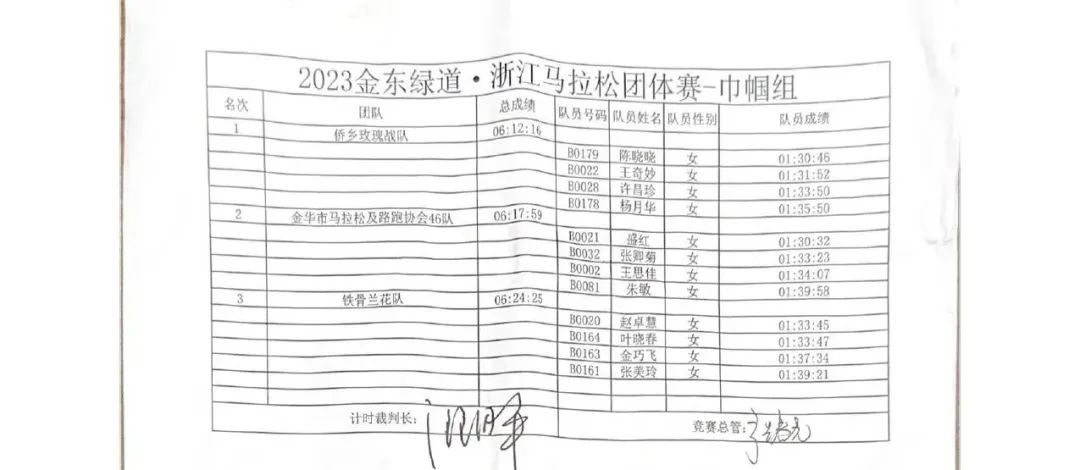 2023金东绿道·浙江马拉松团体赛-巾帼组
名次 团队 总成绩 队员号码 队员姓名 队员性别 队员成绩
1 侨乡玫瑰战队 06:12:16
B0179 陈晓晓 女 01:30:46
B0022 王奇妙 女 01:31:52
B0028 许昌珍 女 01:33:50
B0178 杨月华 女 01:35:50
2 金华市马拉松及路跑协会46队 06:17:59
B0021 盛红 女 01:30:32
B0032 张卿菊 女 01:33:23
B0002 王思佳 女 01:34:07
B0081 朱敏 女 01:39:58
3 铁骨兰花队 06:24:25
B0020 赵卓慧 女 01:33:45
B0164 叶晓春 女 01:33:47
B0163 金巧飞 女 01:37:34
B0161 张美玲 女 01:39:21
计时裁判长: 竞赛总管: